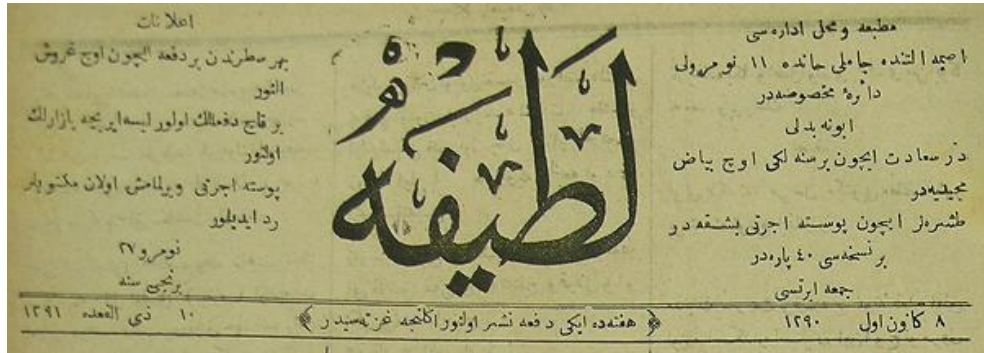 مطبعه و محل اداره سی
اصمه التنده جاملی خانده ١١ نومرولی
دائرۀ مخصوصه‌در
ابونه بدلی
در سعادت ایچون بر سنه لکی اوچ بیاض
مجیدیه‌در
طشره‌لر ایچون پوسته اجرتی بشقه در
بر نسخه‌سی ٤٠ پاره‌در
جمعه ایرتسی
لطیفه
اعلانات
بهر سطرندن بر دفعه ایچون اوچ غروش
النور
بر قاچ دفعه‌لك اولور ایسه ایریجه بازارلك
اولنور
پوسته اجرتی ویرلمامش اولان مکتوبلر
رد ایدیلور
نومرو ٢٧
برنجی سنه
٨ کانون اول ١٢٩٠
﴿ هفته‌ده ایکی دفعه نشر اولنور اکلنجه غزته‌سیدر ﴾
١٠ ذی القعده ١٢٩١